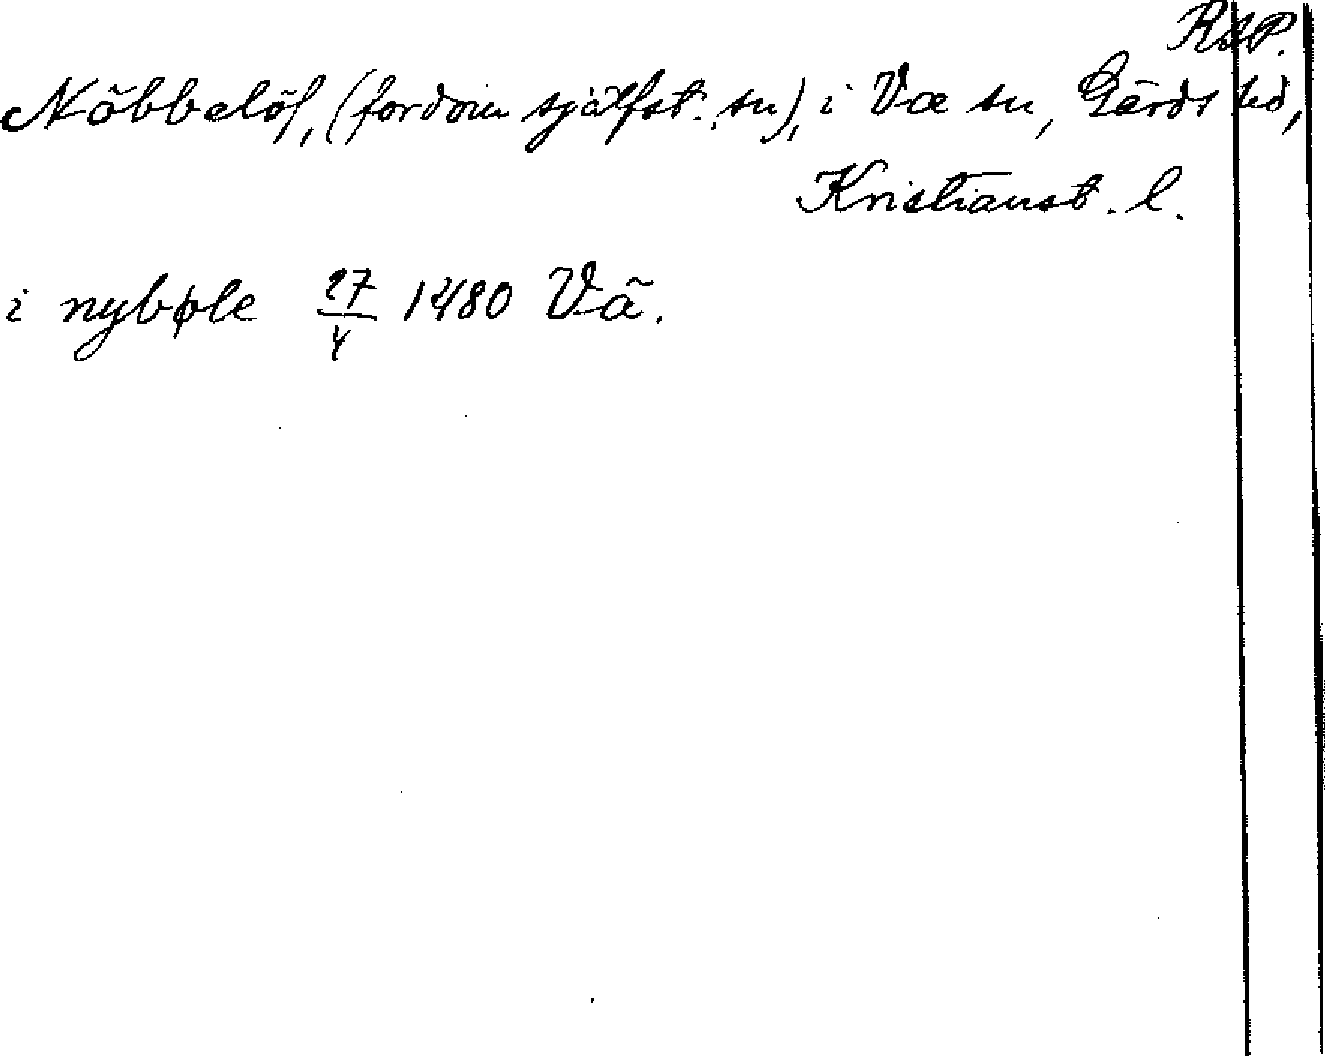 RAP.
Nöbbelöf, (fordom självst. sn), i Væ sn, Gärds hd,
Kristianst. l.
i nybøle 27/4 1480 Vä.